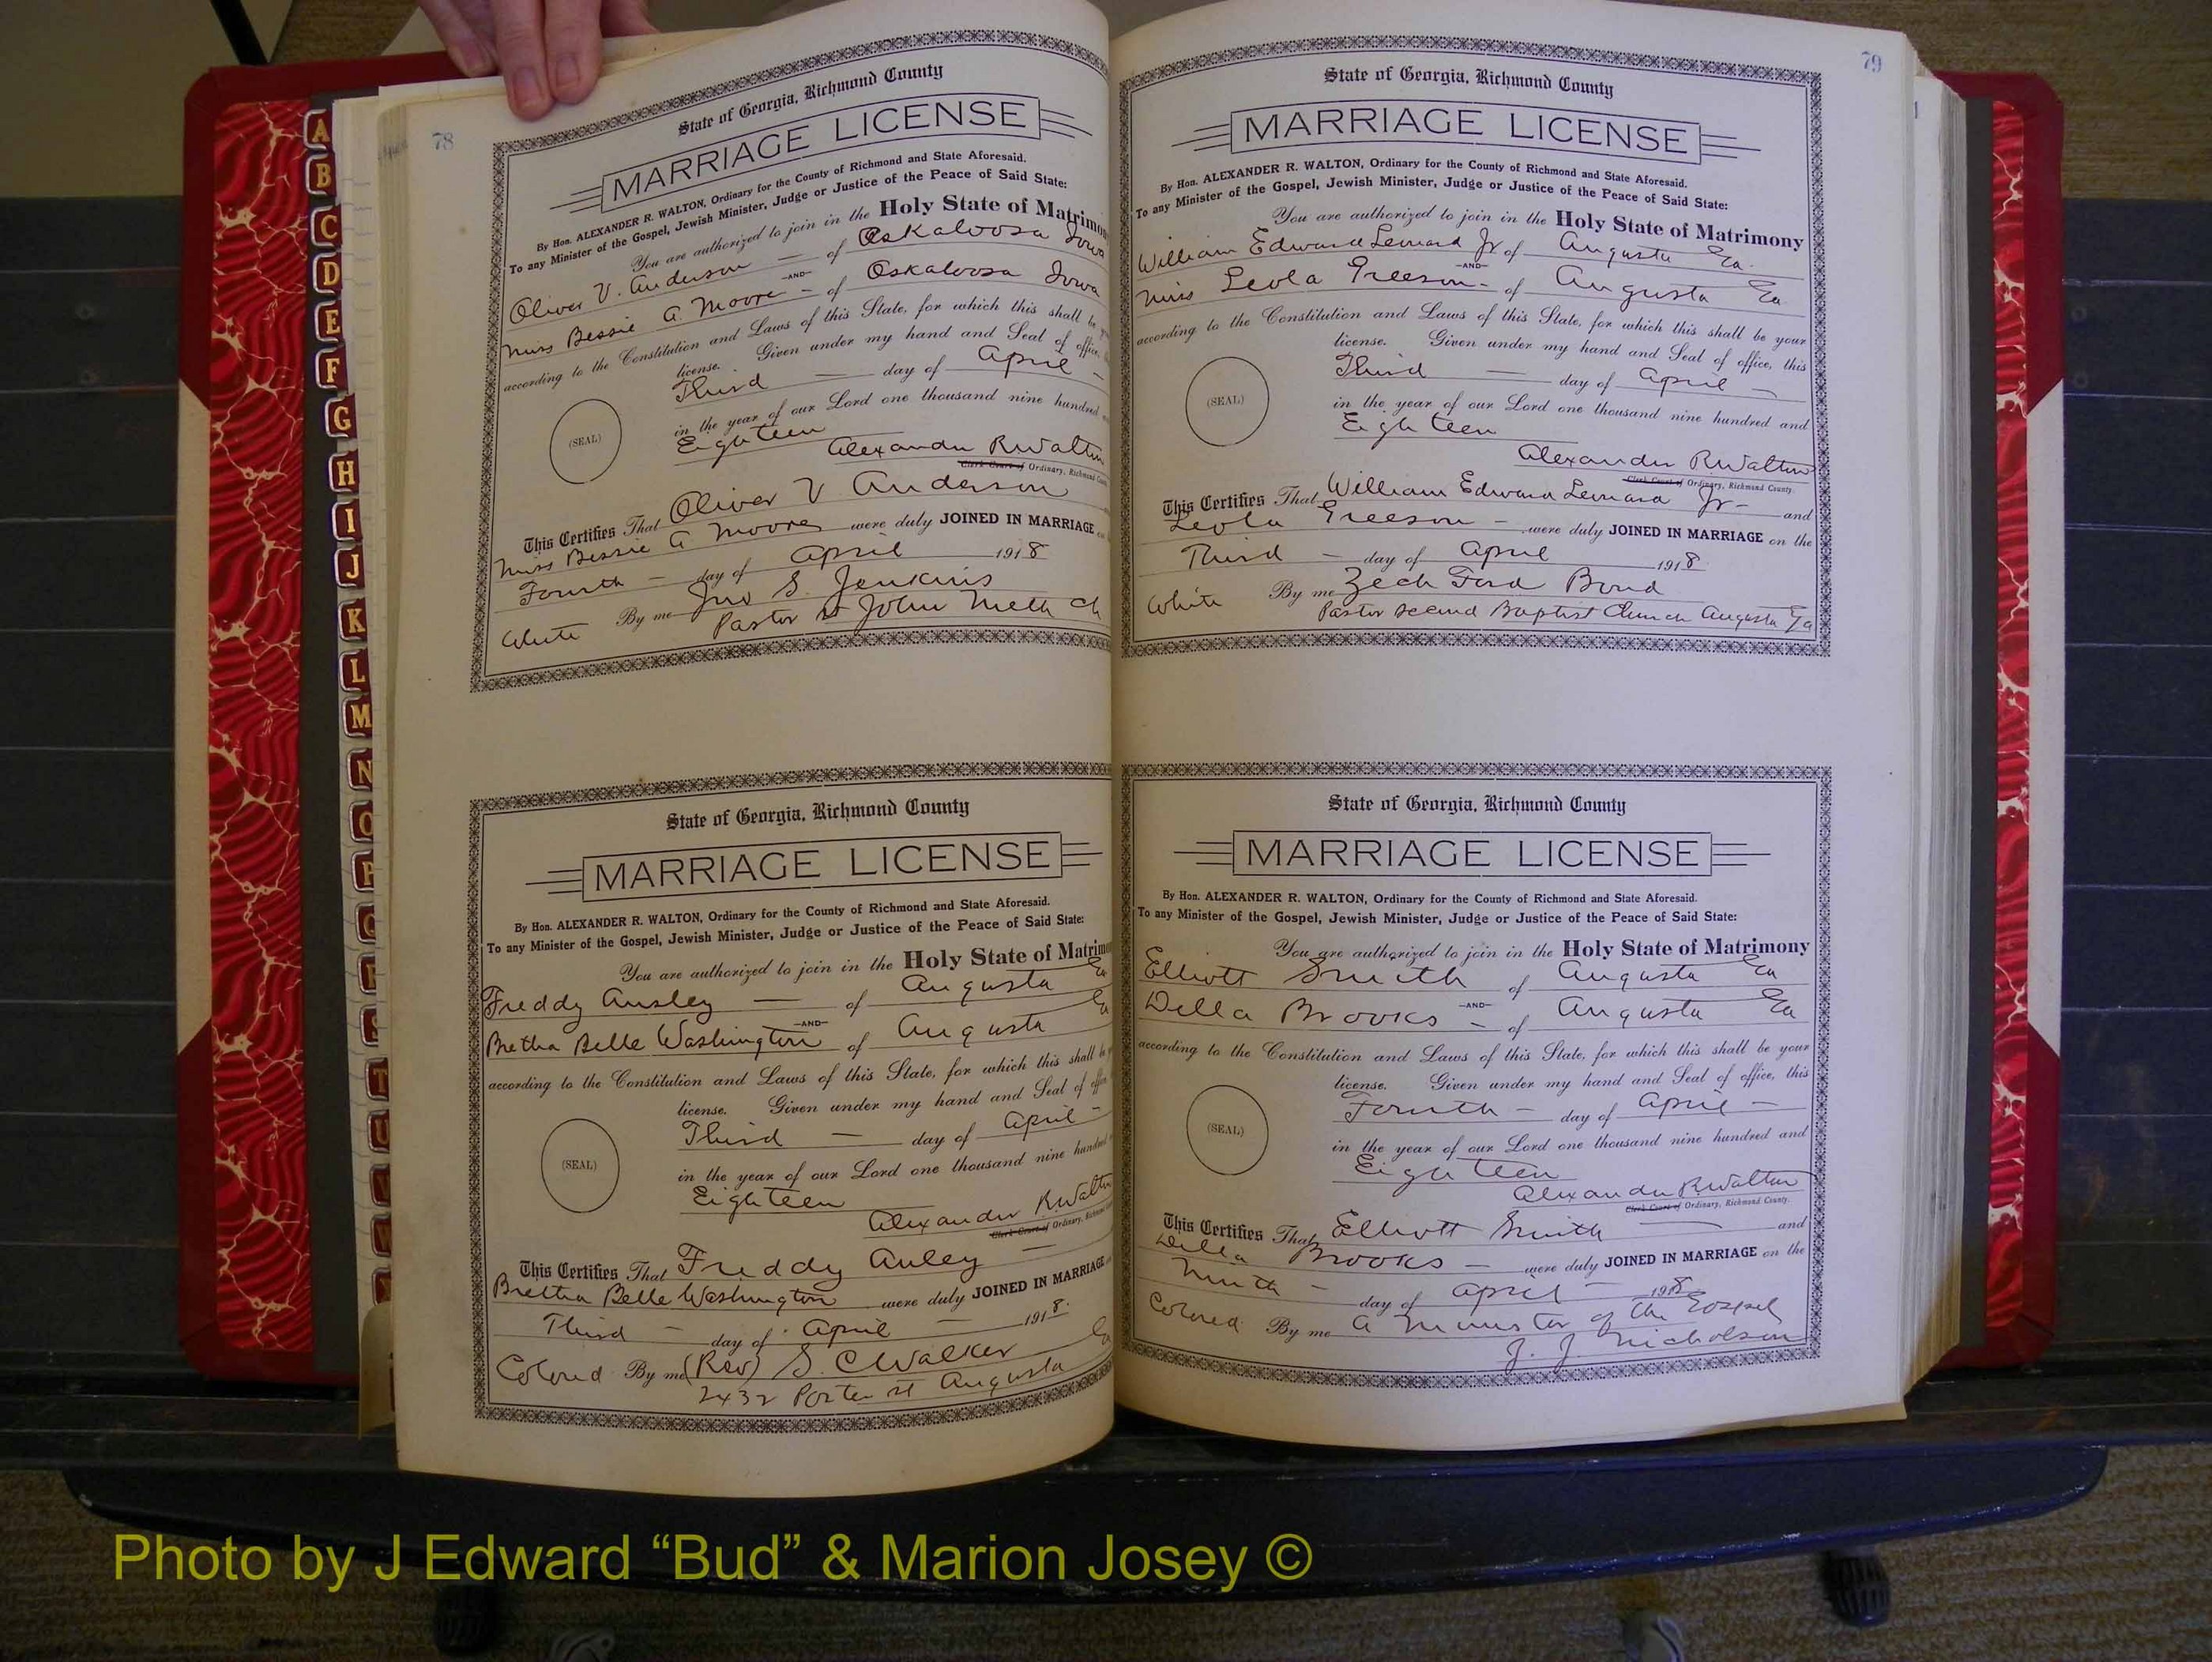 A
B
C
D
E
F
G
H
I
J
K
L
M
N
O
P
Q
R
S
T
U
V
W
78
State of Georgia, Richmond County
MARRIAGE LICENSE
By Hon. ALEXANDER R. WALTON, Ordinary for the County of Richmond and State Aforesaid.
To any Minister of the Gospel, Jewish Minister, Judge or Justice of the Peace of Said State:
You are authorized to join in the Holy State of Matrimo
Oliver V. Anderson — of Oskaloosa Iowa
—AND—
Miss Bessie A. Moore - of Oskaloosa Iowa
according to the Constitution and Laws of this State, for which this shall be
license. Given under my hand and Seal of office,
Third — day of April —
(SEAL)
in the year of our Lord one thousand nine hundred
Eighteen
Alexander R Walton
Clerk Court of Ordinary, Richmond
This Certifies That Oliver V Anderson
Miss Bessie A Moore were duly JOINED IN MARRIAGE
Fourth — day of April 1918
White By me Jno S. Jenkins
Pastor St John Meth Ch
State of Georgia, Richmond County
MARRIAGE LICENSE
By Hon. ALEXANDER R. WALTON, Ordinary for the County of Richmond and State Aforesaid.
To any Minister of the Gospel, Jewish Minister, Judge or Justice of the Peace of Said State:
You are authorized to join in the Holy State of Matrimo
Freddy Ansley — of Augusta Ga
—AND—
Bretha Belle Washington of Augusta Ga
according to the Constitution and Laws of this State, for which this shall be
license. Given under my hand and Seal of office
Third — day of April —
(SEAL)
in the year of our Lord one thousand nine hundred
Eighteen
Alexander R Walton
Clerk Court of Ordinary, Richmond
This Certifies That Freddy Anley —
Bretha Belle Washington were duly JOINED IN MARRIAGE
Third — day of April — 1918.
Colored By me (Rev) S. C Walker
2432 Porter st Augusta Ga
79
State of Georgia, Richmond County
MARRIAGE LICENSE
By Hon. ALEXANDER R. WALTON, Ordinary for the County of Richmond and State Aforesaid.
To any Minister of the Gospel, Jewish Minister, Judge or Justice of the Peace of Said State:
You are authorized to join in the Holy State of Matrimony
William Edward Leonard Jr of Augusta Ga.
—AND—
Miss Leola Greeson - of Augusta Ga
according to the Constitution and Laws of this State, for which this shall be your
license. Given under my hand and Seal of office, this
Third — day of April —
(SEAL)
in the year of our Lord one thousand nine hundred and
Eighteen
Alexander R Walton
Clerk Court of Ordinary, Richmond County.
This Certifies That William Edward Leonard Jr - and
Leola Greeson - were duly JOINED IN MARRIAGE on the
Third - day of April 1918.
White By me Zech Ford Bond
Pastor Second Baptist Church Augusta Ga
State of Georgia, Richmond County
MARRIAGE LICENSE
By Hon. ALEXANDER R. WALTON, Ordinary for the County of Richmond and State Aforesaid.
To any Minister of the Gospel, Jewish Minister, Judge or Justice of the Peace of Said State:
You are authorized to join in the Holy State of Matrimony
Elliott Smith of Augusta Ga
—AND—
Della Brooks - of Augusta Ga
according to the Constitution and Laws of this State, for which this shall be your
license. Given under my hand and Seal of office, this
Fourth - day of April —
(SEAL)
in the year of our Lord one thousand nine hundred and
Eighteen
Alexander R Walton
Clerk Court of Ordinary, Richmond County.
This Certifies That Elliott Smith — and
Della Brooks - were duly JOINED IN MARRIAGE on the
Ninth - day of April - 1918
Colored By me A Minister of the Gospel
J. J Nicholson
Photo by J Edward “Bud” & Marion Josey ©